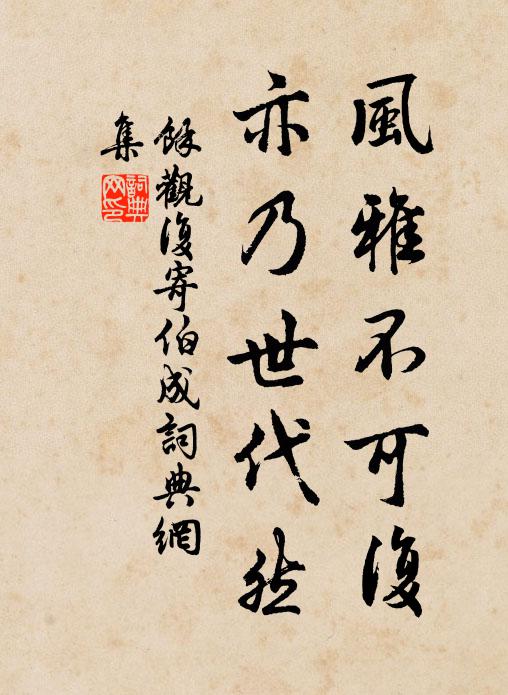 風雅不可復
亦乃世代然
餘觀復寄伯成詞典網
集
詞典
网印